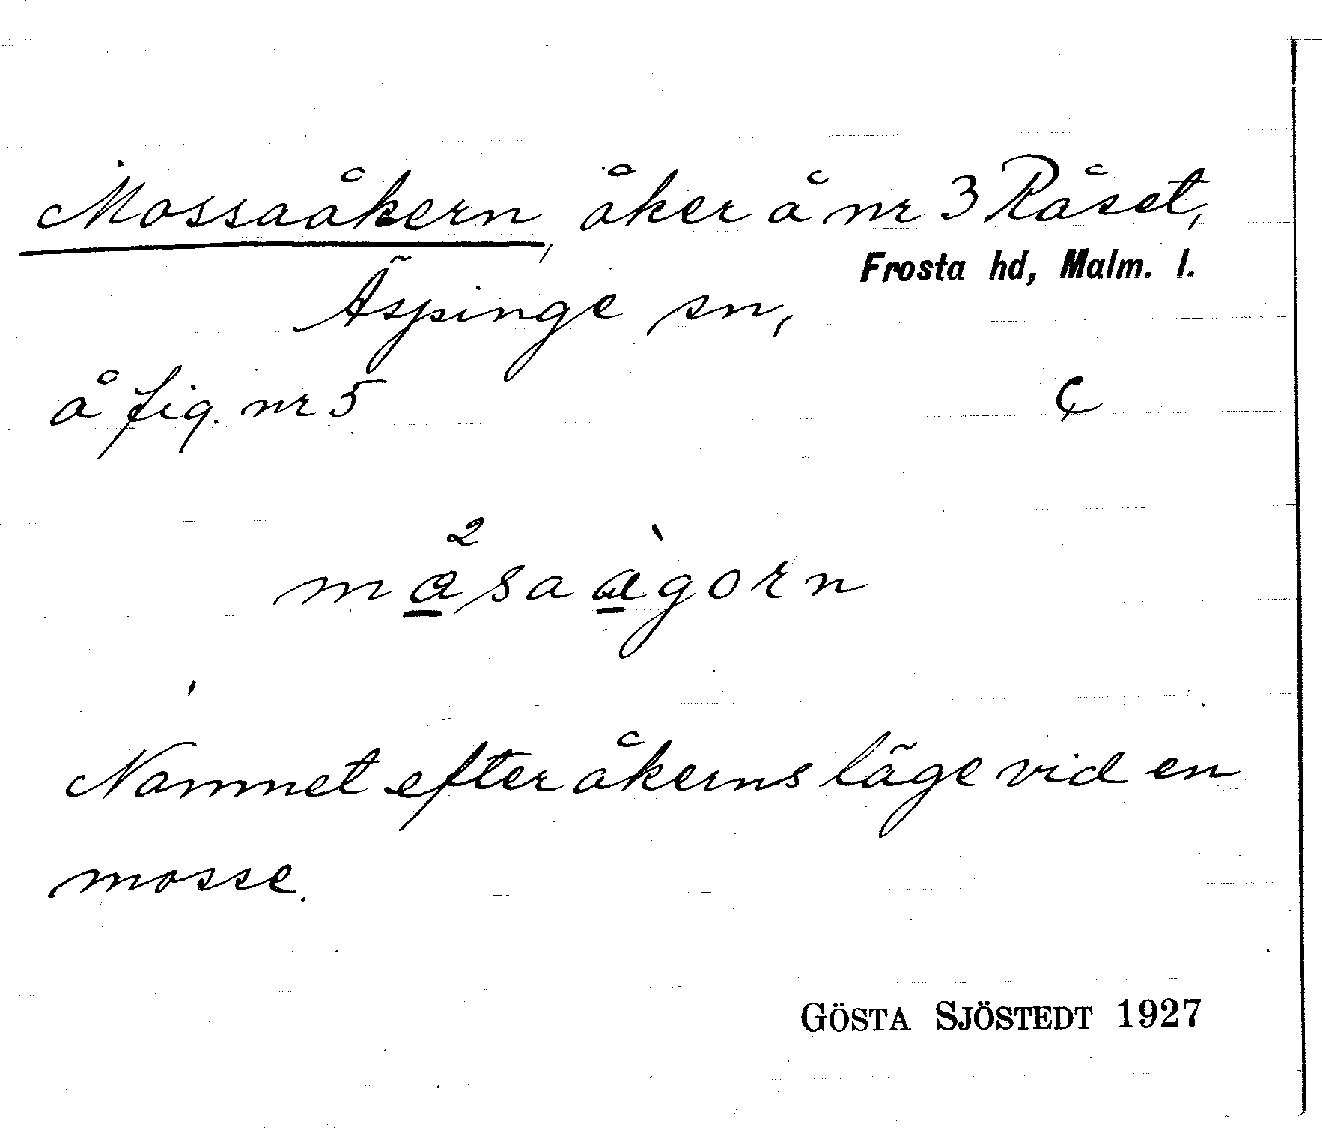 Mossaåkern, åker å nr 3 Råset,
Frosta hd, Malm. l.
Äspinge sn,
å fig. nr 5 Ç
må²saàgorn
Namnet efter åkerns läge vid en
mosse.
GÖSTA SJÖSTEDT 1927